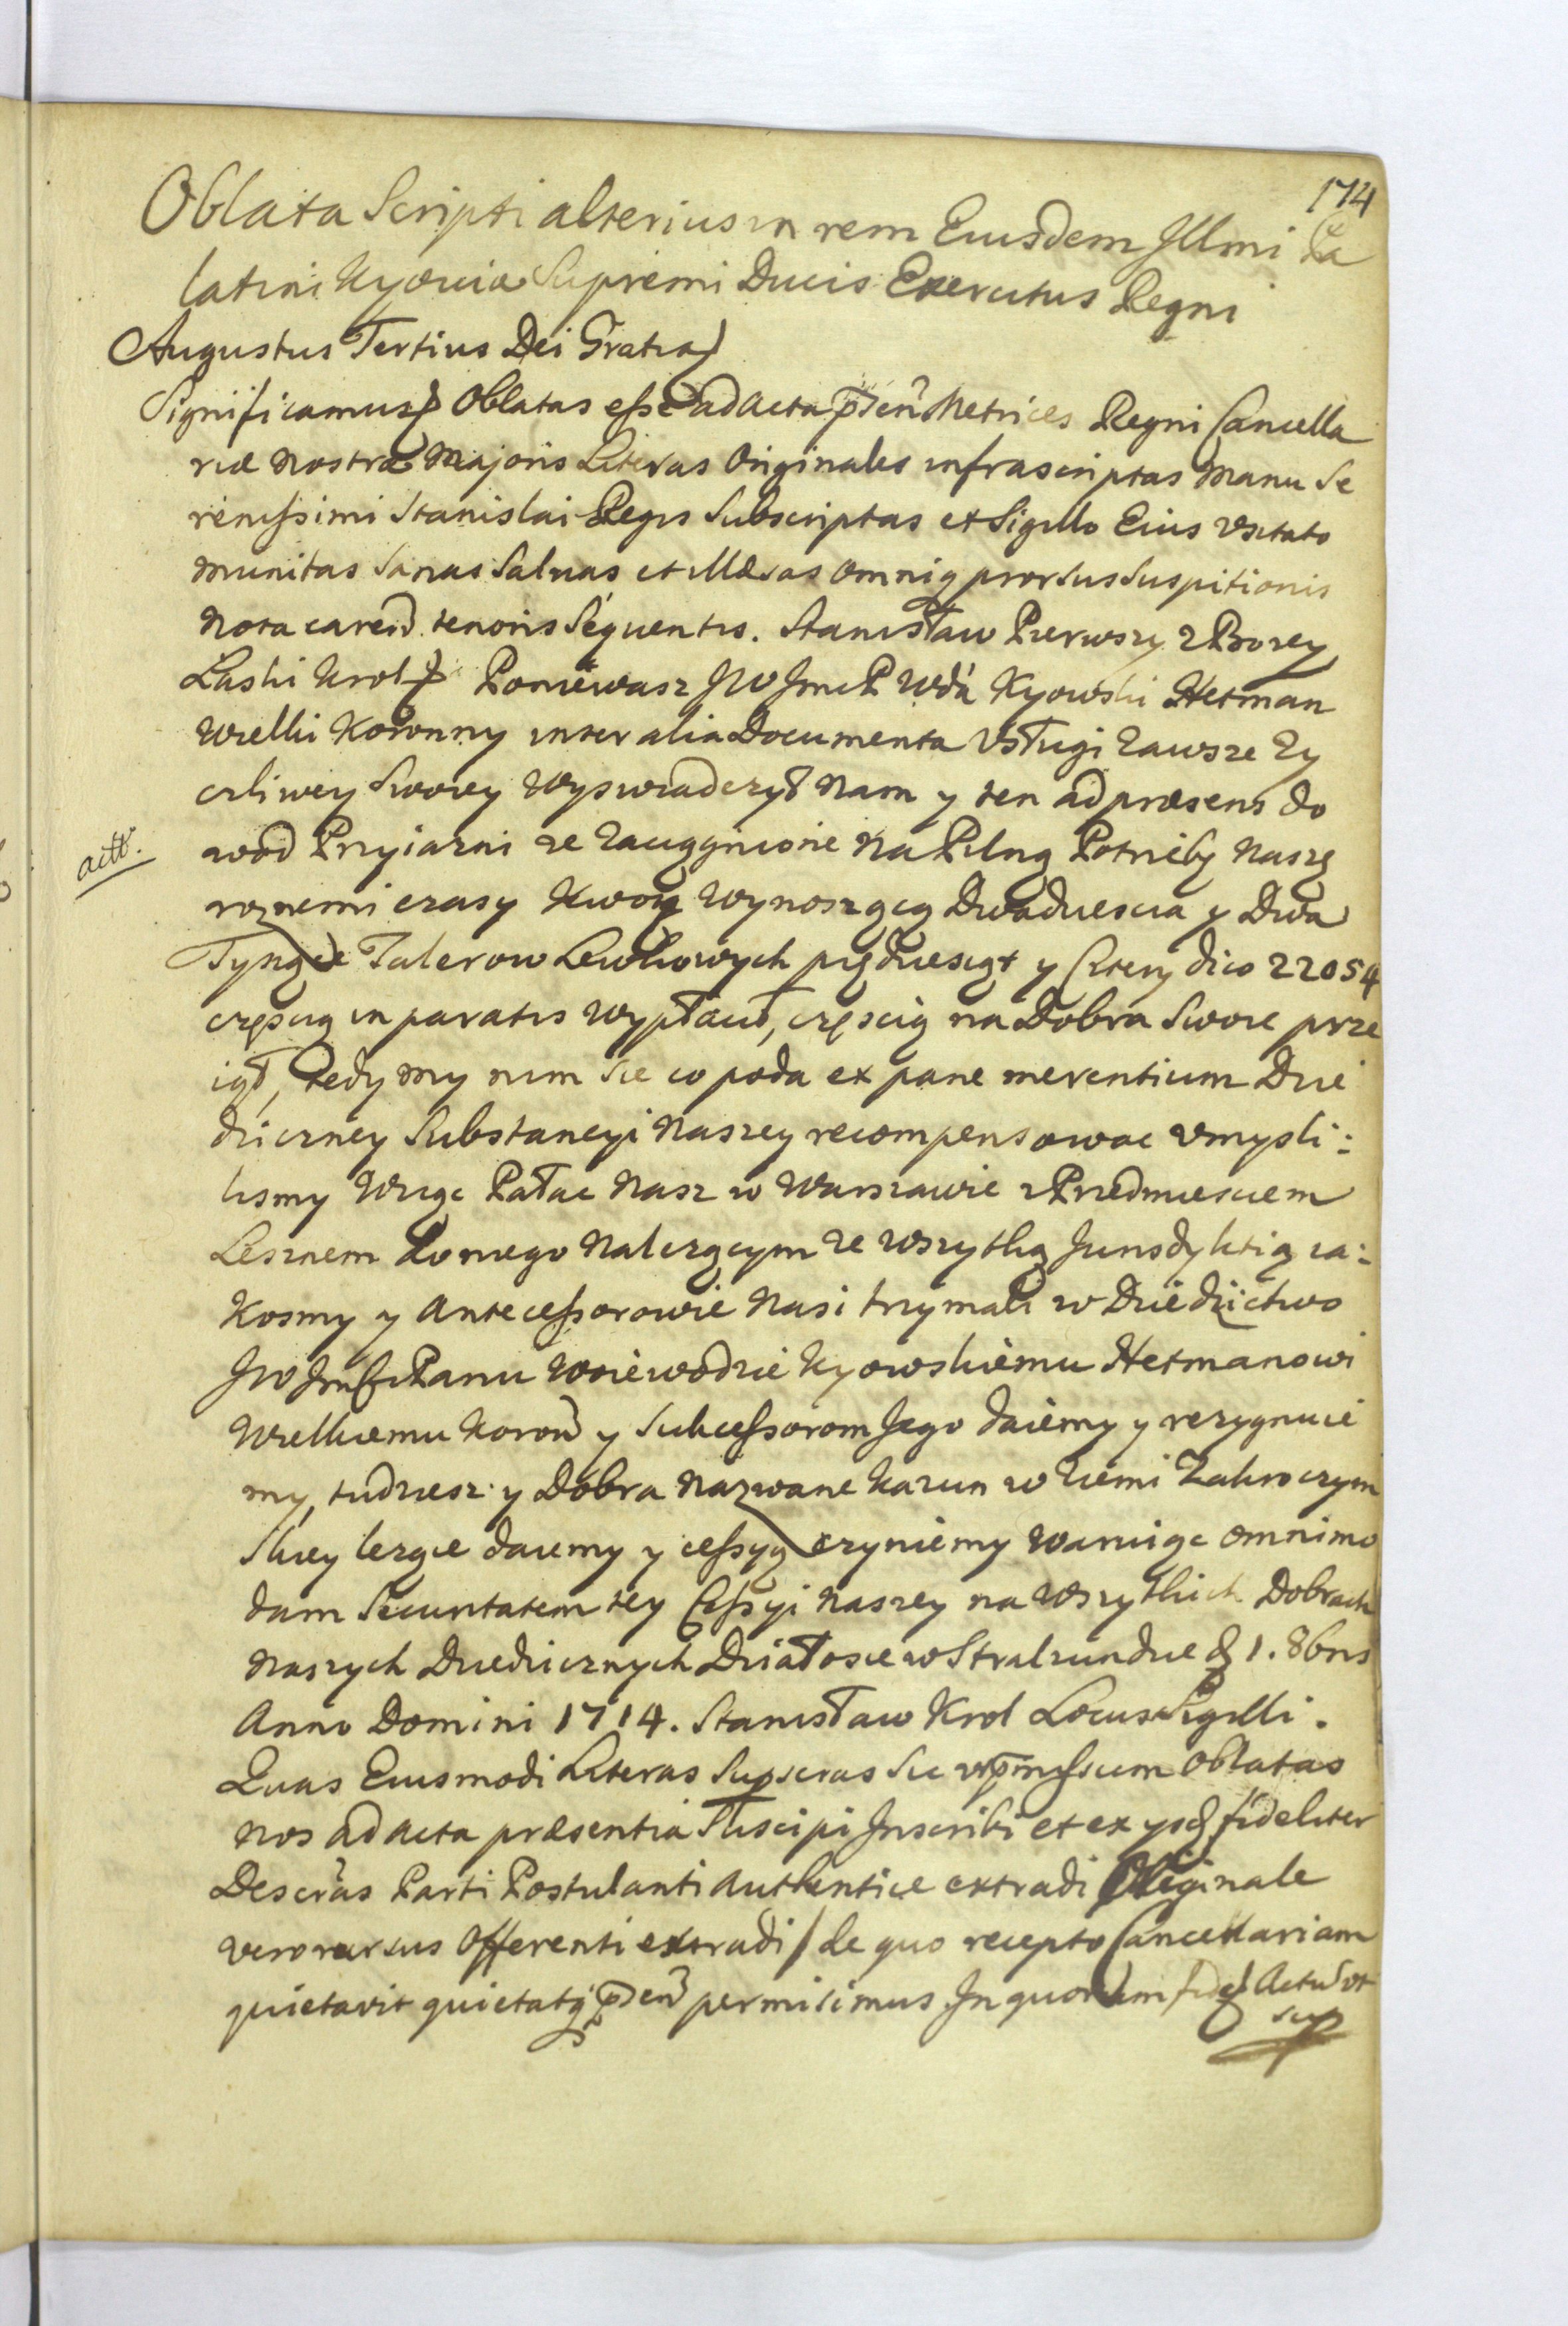 174
Oblata Scripti alterius in rem Eiusdem Illmi Pa
latini Kyoviæ Supremi Ducis Exercitus Regni
Augustus Tertius Dei Gratia
Significamus Oblatas esse ad Acta pñtñ Metrices Regni Cancella
riæ Nostræ Majoris Literas Originales infrascriptas Manu Se
renissimi Stanislai Regis Subscriptas et Sigillo Eius Usitato
munitas Sanas Salvas et Illæsas Omniq prorsus Suspitionis
Nota careñ. tenoris Sequentis. Stanisław Pierwszy z Bozey
Laski Krol Poniewasz JW Jmć P Wdá Kyowski Hetman
Wielki Koronny inter alia Documenta Usługi Zawsze Zy
czliwey Swoiey Wyswiadczył Nam y ten ad præsens do
actt.
wod Przyiazni ze Zaciągnione Na Pilną Potrzebę Naszę
roznemi czasy Kwotę Wynoszącą Dwadziescia y Dwa
Tysiące Talerow Lewkowych piędziesiąt y Cztery dico 22054
częscią in paratis Wypłacił, częscią na Dobra Swoie prze
iął, Tedy my nim Sie co poda ex pane merentium Dzie
dziczney Substancyi Naszey recompensowac Umysli:
lismy Więc Pałac Nasz w Warszawie z Przedmiesciem
Lesznem do niego Nalezącym ze wszytką Jurisdyktią ia:
kosmy y Antecessorowie Nasi trzymali w Dziedzictwo
JW Jmći Panu Woiewodzie Kyowskiemu Hetmanowi
Wielkiemu Koroñ y Sukcessorom Jego daiemy y rezygnuie
my, tudziesz y Dobra Nazwane Kazun w Ziemi Zakroczym
skiey lezące daiemy y cessyą czyniemy Waruiąc omnimo
dam Securitatem tey Cessyi Naszey na Wszytkich Dobrach
Naszych Dziedzicznych Działo sie w Stralzundzie d 1. 8bris
Anno Domini 1714. Stanisław Krol Locus Sigilli.
Quas Eiusmodi Literas Supscras Sic ut pmissum Oblatas
Nos ad Acta præsentia Suscipi Inscribi et ex ysd fideliter
Descras Parti Postulanti Authentice extradi Originale
vero rursus Offerenti extradi de quo recepto Cancellariam
quietavit quietatq pñtñ permisimus In quorum fidem Actũ ut
sup